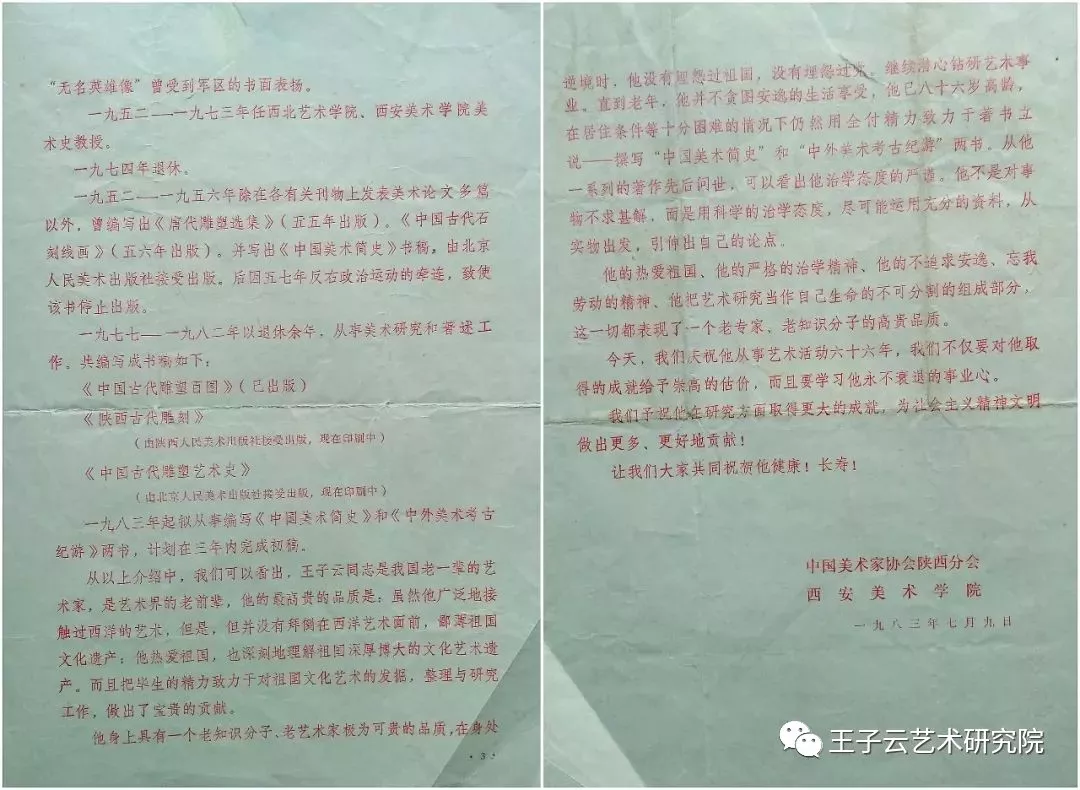 “无名英雄像”曾受到军区的书面表扬。
一九五二——一九七三年任西北艺术学院、西安美术学院美
术史教授。
一九七四年退休。
一九五二——一九五六年除在各有关刊物上发表美术论文多篇
以外，曾编写出《唐代雕塑选集》（五五年出版）。《中国古代石
刻线画》（五六年出版）。并写出《中国美术简史》书稿，由北京
人民美术出版社接受出版。后因五七年反右政治运动的牵连，致使
该书停止出版。
一九七七——一九八二年以退休余年，从事美术研究和著述工
作。共编写成书稿如下：
《中国古代雕塑百图》（已出版）
《陕西古代雕刻》
（由陕西人民美术出版社接受出版，现在印刷中）
《中国古代雕塑艺术史》
（由北京人民美术出版社接受出版，现在印刷中）
一九八三年起拟从事编写《中国美术简史》和《中外美术考古
纪游》两书，计划在三年内完成初稿。
从以上介绍中，我们可以看出，王子云同志是我国老一辈的艺
术家，是艺术界的老前辈，他的最高贵的品质是：虽然他广泛地接
触过西洋的艺术，但是，但并没有拜倒在西洋艺术面前，鄙薄祖国
文化遗产；他热爱祖国，也深刻地理解祖国深厚博大的文化艺术遗
产。而且把毕生的精力致力于对祖国文化艺术的发掘，整理与研究
工作，做出了宝贵的贡献。
他身上具有一个老知识分子、老艺术家极为可贵的品质，在身处
·3·
逆境时，他没有埋怨过祖国，没有埋怨过党。继续潜心钻研艺术事
业。直到老年，他并不贪图安逸的生活享受，他已八十六岁高龄，
在居住条件等十分困难的情况下仍然用全付精力致力于著书立
说——撰写“中国美术简史”和“中外美术考古纪游”两书。从他
一系列的著作先后问世，可以看出他治学态度的严谨。他不是对事
物不求甚解，而是用科学的治学态度，尽可能运用充分的资料，从
实物出发，引伸出自己的论点。
他的热爱祖国、他的严格的治学精神、他的不追求安逸、忘我
劳动的精神、他把艺术研究当作自己生命的不可分割的组成部分，
这一切都表现了一个老专家、老知识分子的高贵品质。
今天，我们庆祝他从事艺术活动六十六年，我们不仅要对他取
得的成就给予崇高的估价，而且要学习他永不衰退的事业心。
我们予祝他在研究方面取得更大的成就，为社会主义精神文明
做出更多、更好地贡献！
让我们大家共同祝贺他健康！长寿！
中国美术家协会陕西分会
西安美术学院
一九八三年七月九日
王子云艺术研究院